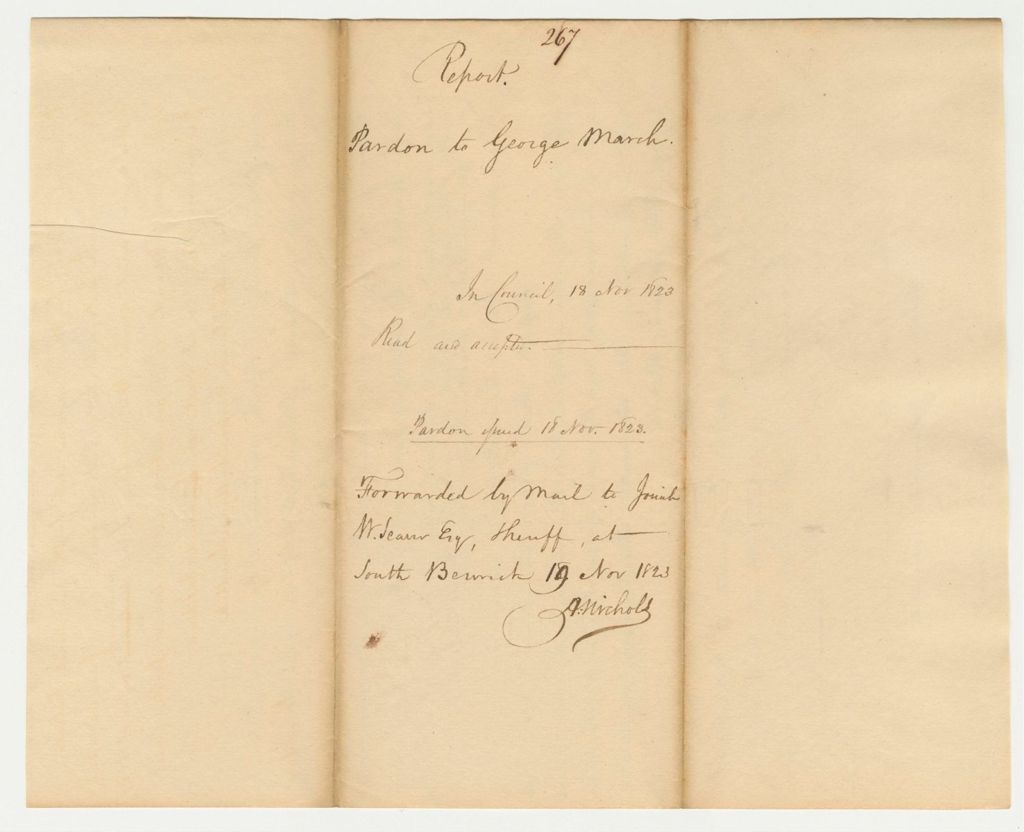 267
Report.
Pardon to George March.
In Council, 18 Nov 1823
Read and accepted.
Pardon issued 18 Nov. 1823.
Forwarded by Mail to Josiah
W. Seaver Esq, Sheriff, at
South Berwick 19 Nov 1823
A. Nichols